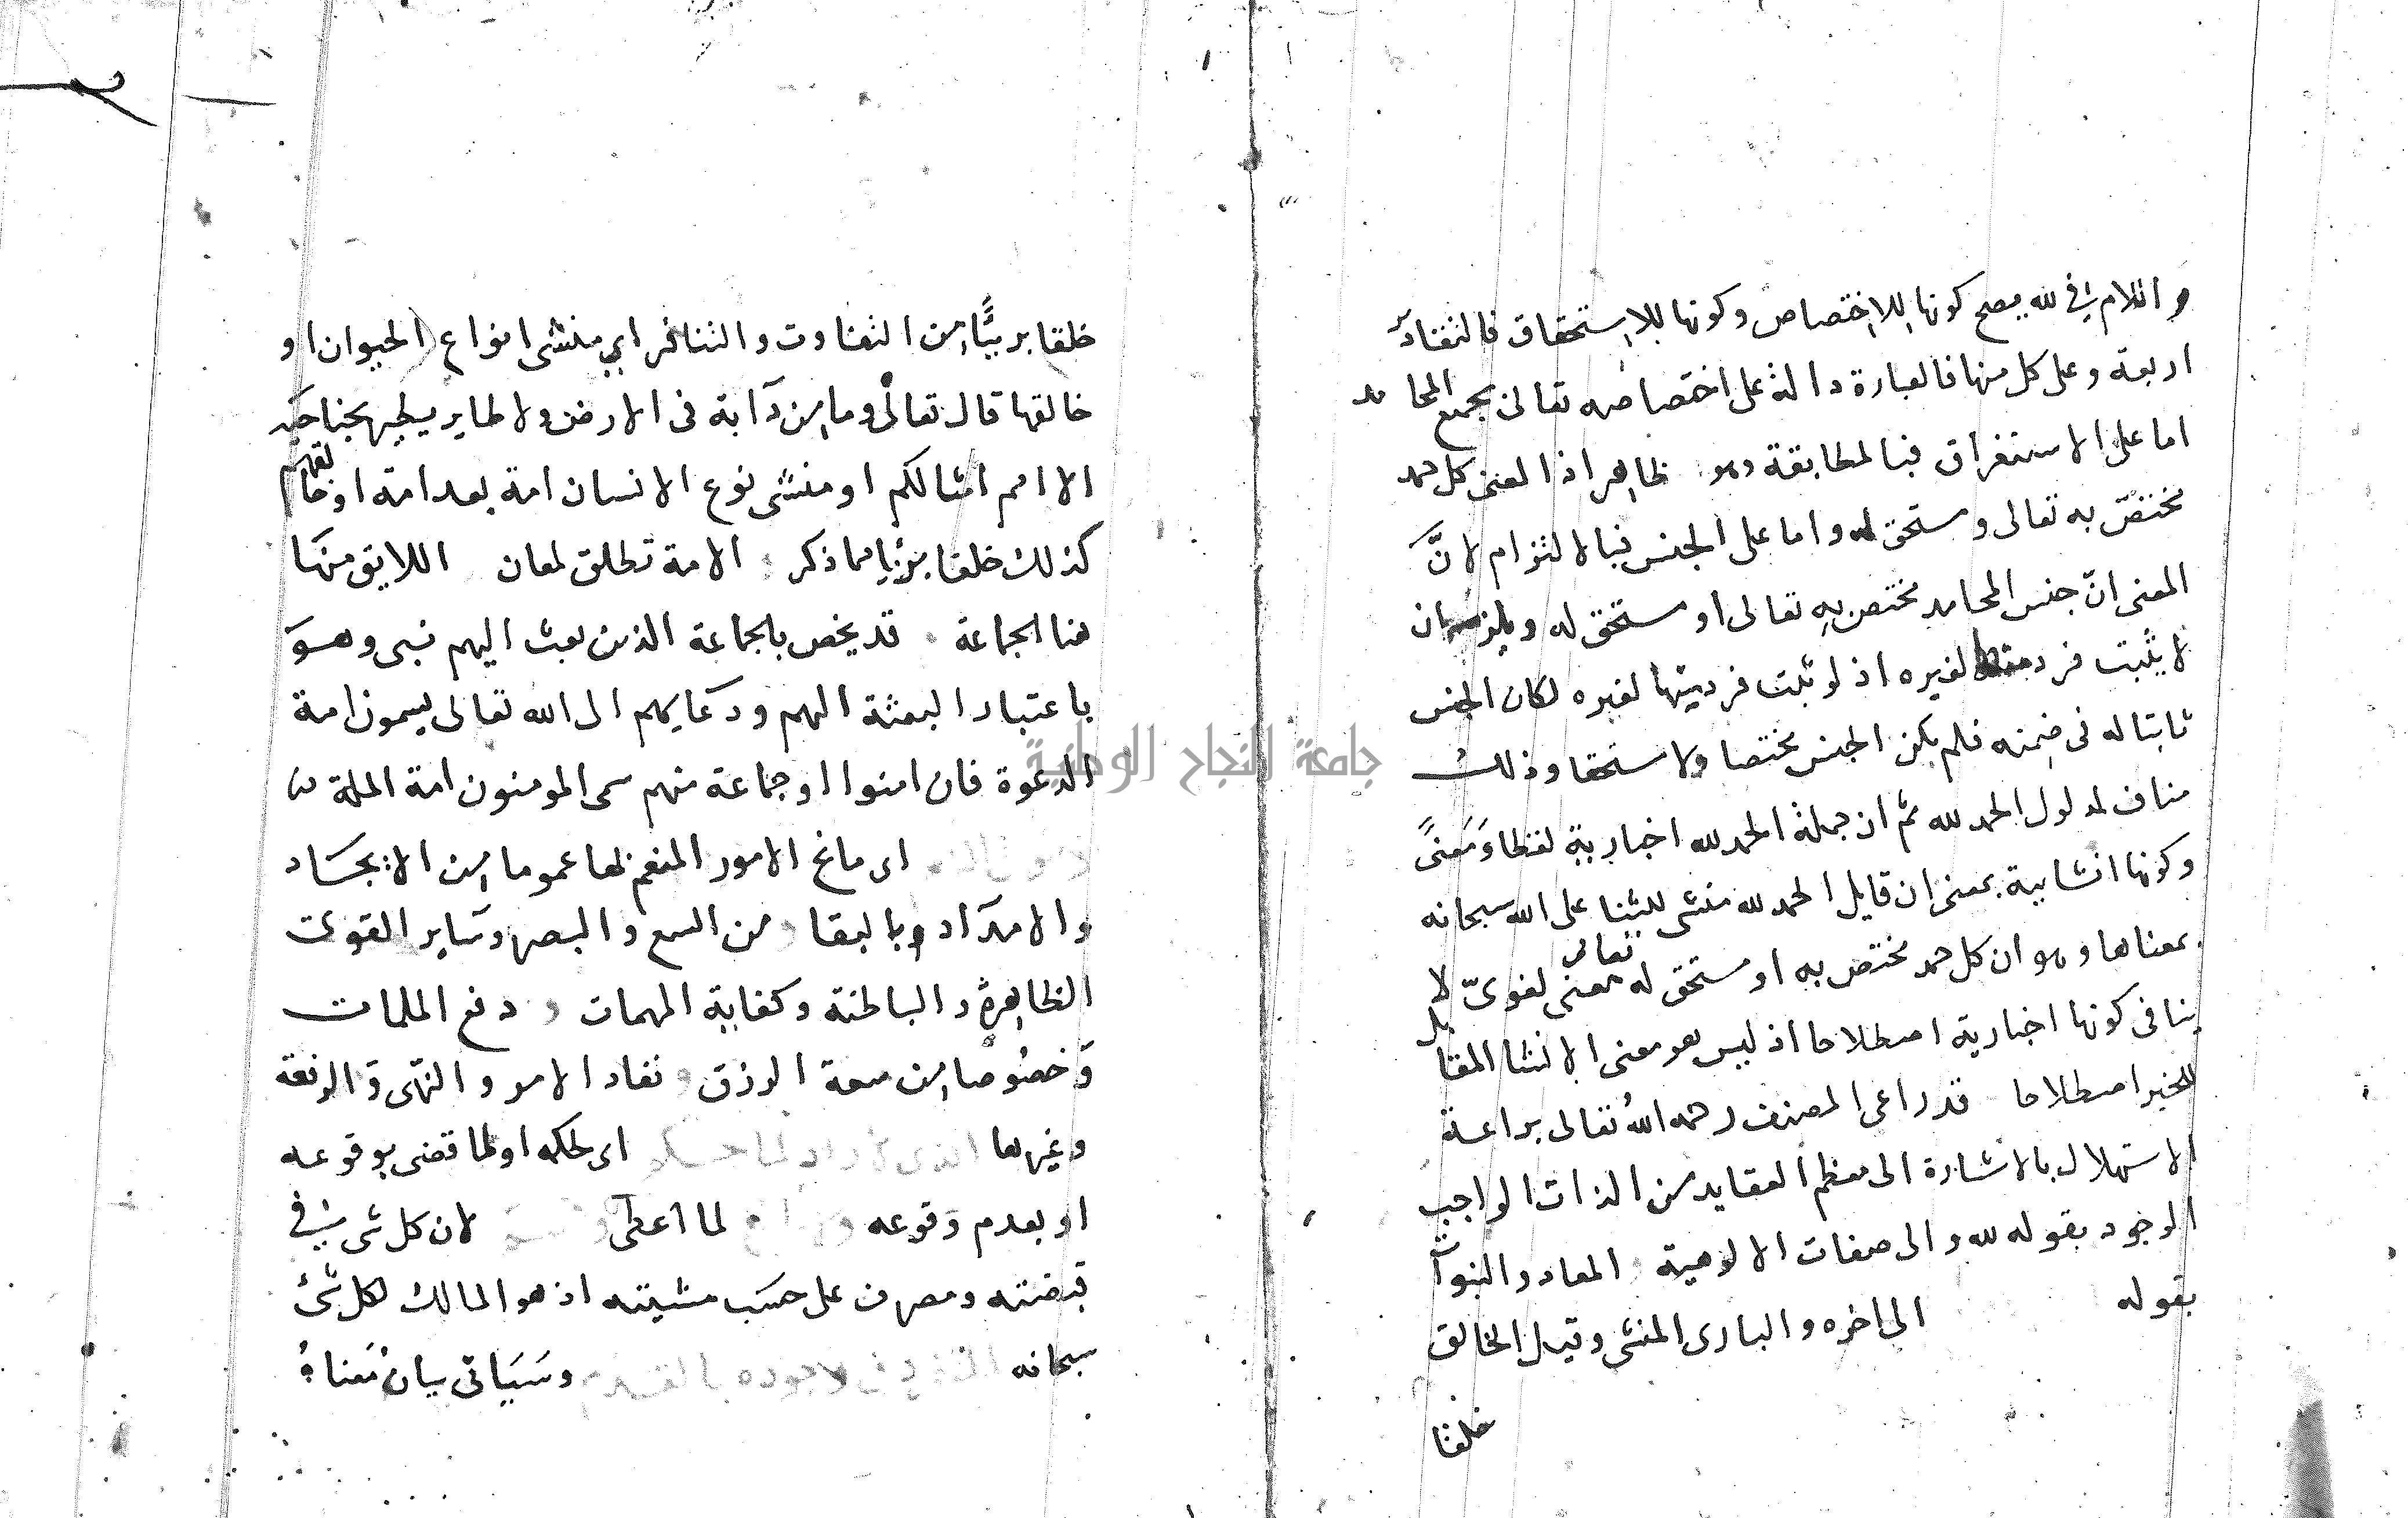 واللام في لله يصح كونها للاختصاص وكونها للاستحقاق فالتقادير
اربعة وعلى كل منها فالعبارة دالة على اختصاصه تعالى بجميع المحامد
اما على الاستغراق فبالمطابقة وهو ظاهر اذ المعنى كل حمد
مختصّ به تعالى ومستحق له واما على الجنس فبالالتزام لانَّ
المعنى انّ جنس المحامد مختص به تعالى او مستحق له ويلزمه ان
لا يثبت فرد منها لغيره اذ لو ثبت فرد منها لغيره لكان الجنس
ثابتا له في ضمنه فلم يكن الجنس مختصا ولا مستحقا وذلك
مناف لمدلول الحمد لله ثم ان جملة الحمد لله اخبارية لفظا وَمَعنىً
وكونها انشايية بمعنى ان قايل الحمد لله منشى للثنا على الله سبحانه
بمعناها وهو ان كل حمد مختص به او مستحق له تعالى معنى لغوىّ لا
ينافى كونها اخبارية اصطلاحا اذ ليس هو معنى الانشا المقابل
للخبر اصطلاحا قد راعى المصنف رحمه اللهُ تعالى براعة
الاستهلال بالاشارة الى معظم العقايد من الذات الواجب
الوجود بقوله لله والى صفات الالوهية المعاد والنبوات
بقوله الى اخره والبارى المنشى وقيل الخالق
خلقا
جامعة النجاح الوطنية
خلقا بريًّا من التفاوت والتنافر اي منشى انواع الحيوان او
خالقها قال تعالى وما من دآبة فى الارض ولا طاير يطير بجناحيه
الا امم امثالكم او منشى نوع الانسان امة بعد امة او خالقهم
كذلك خلقا بريا مما ذكر الامة تطلق لمعان اللايق منها
هنا الجماعة قد يخص بالجماعة الذين بعث اليهم نبى وهو
باعتبار البعثة اليهم ودعايهم الى الله تعالى يسمون امة
الدعوة فان امنوا او جماعة منهم سمى المومنون امة الملة
اى مانح الامور المنعم بها عموما من الايجاد
والامداد وبالبقا من السمع والبصر وسَاير القوى
الظاهرة والباطنة وكفاية المهمات و دفع الملمات
وَخصُوصا من سعة الرزق نفاد الامر والنهى وَالرفعة
وغيرها اى لحكمه او لما قضى بوقوعه
او بعدم وقوعه لما اعطى لان كل شى في
قبضته ومصرف على حسَب مشيته اذ هو المالك لكل شئ
سبحانه وسَيَاتى بيان مَعناهُ